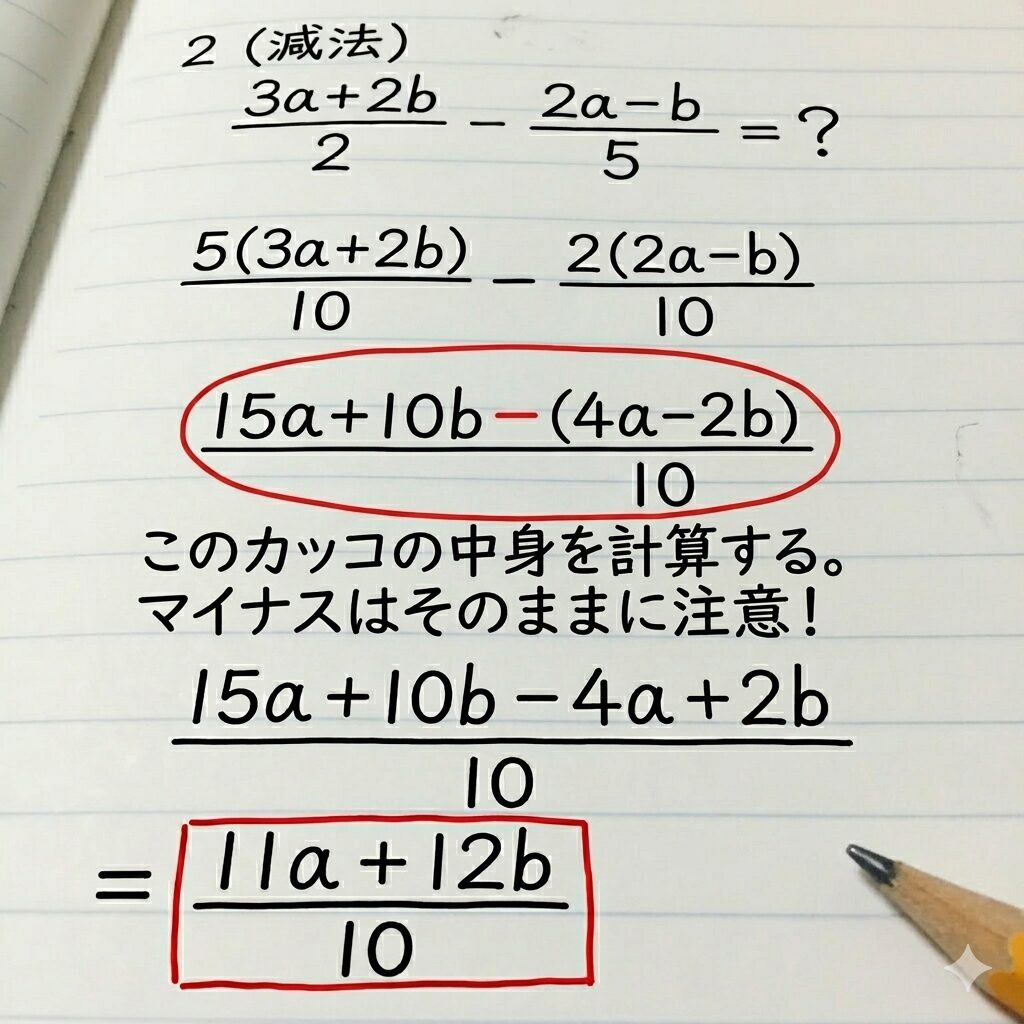 2 (減法)
(3a+2b)/2 - (2a-b)/5 = ?
5(3a+2b)/10 - 2(2a-b)/10
(15a+10b-(4a-2b))/10
このカッコの中身を計算する。
マイナスはそのままに注意!
(15a+10b-4a+2b)/10
= (11a+12b)/10